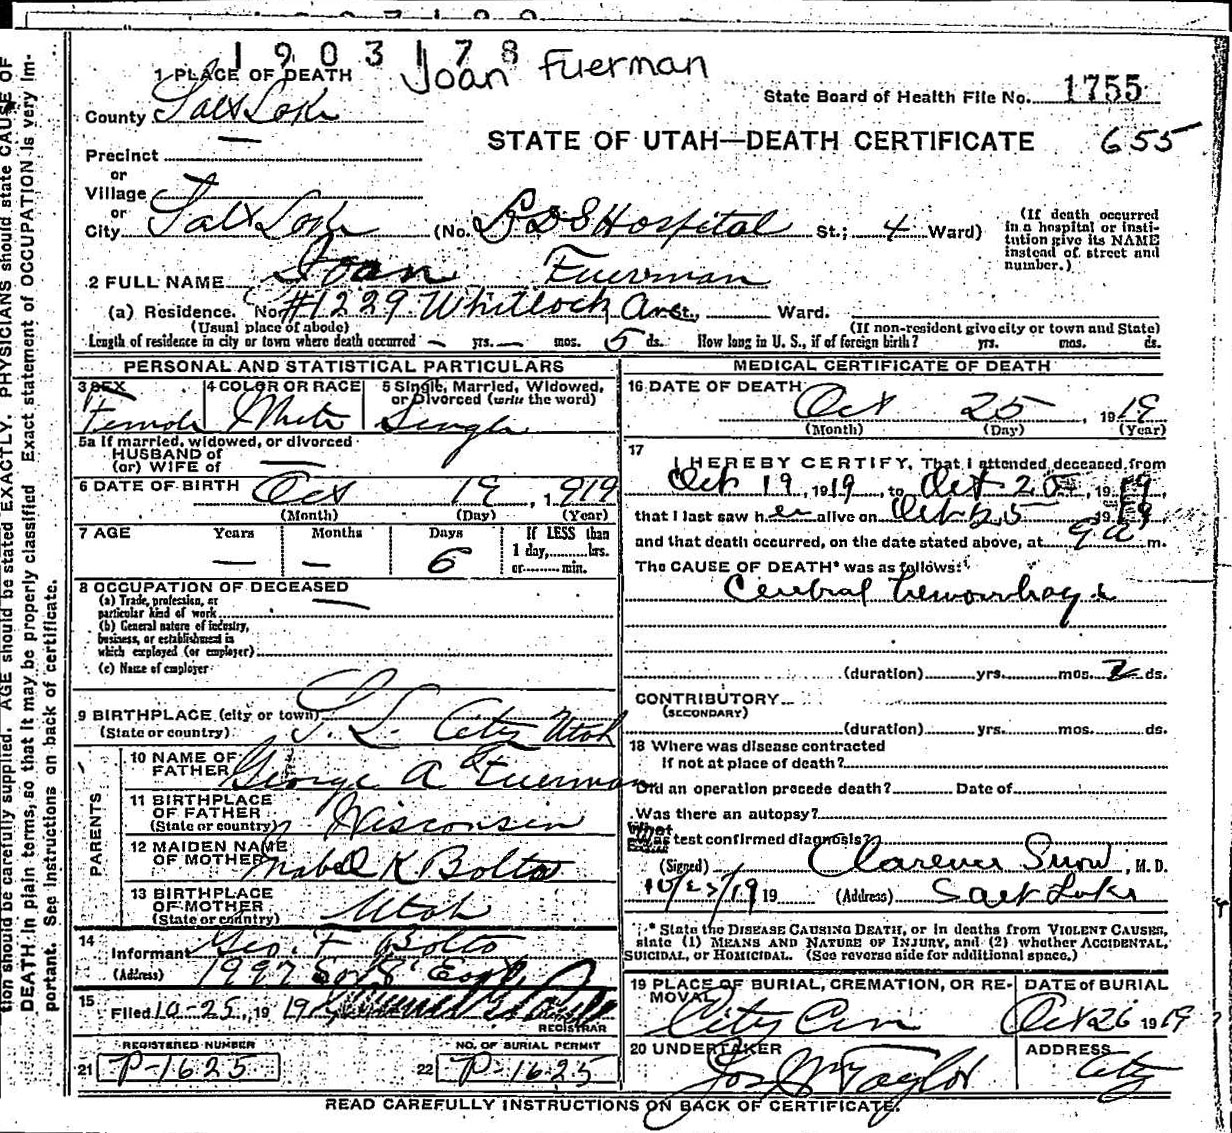 1903178
Joan Fuerman
1 PLACE OF DEATH
State Board of Health File No. 1755
County Salt Lake
STATE OF UTAH—DEATH CERTIFICATE 655
Precinct —
or
Village
or
City Salt Lake (No. L D S Hospital St.; 4 Ward)
(If death occurred in a hospital or institution give its NAME instead of street and number.)
2 FULL NAME Joan Fuerman
(a) Residence. No. #1229 Whitlock Ave St., Ward.
(Usual place of abode) (If non-resident give city or town and State)
Length of residence in city or town where death occurred — yrs. — mos. 5 ds. How long in U. S., if of foreign birth? yrs. mos. ds.
PERSONAL AND STATISTICAL PARTICULARS
3 SEX Female
4 COLOR OR RACE White
5 Single, Married, Widowed, or Divorced (write the word) Single
5a If married, widowed, or divorced
HUSBAND of
(or) WIFE of —
6 DATE OF BIRTH Oct 19, 1919
(Month) (Day) (Year)
7 AGE Years — Months — Days 6
If LESS than
1 day, hrs.
or min.
8 OCCUPATION OF DECEASED
(a) Trade, profession, or
particular kind of work —
(b) General nature of industry,
business, or establishment in
which employed (or employer)
(c) Name of employer
9 BIRTHPLACE (city or town)
(State or country) S. L. City Utah
PARENTS
10 NAME OF
FATHER George A Fuerman
11 BIRTHPLACE
OF FATHER
(State or country) Wisconsin
12 MAIDEN NAME
OF MOTHER Mabel K Bolto
13 BIRTHPLACE
OF MOTHER
(State or country) Utah
14
Informant Geo. F Bolto
(Address) 1997 So 8 East
15
Filed 10-25, 19 19
REGISTRAR
REGISTERED NUMBER
21 P-1625
NO. OF BURIAL PERMIT
22 P-1625
MEDICAL CERTIFICATE OF DEATH
16 DATE OF DEATH Oct 25, 1919
(Month) (Day) (Year)
17
I HEREBY CERTIFY, That I attended deceased from
Oct 19, 1919, to Oct 25, 1919,
that I last saw her alive on Oct 25 1919
and that death occurred, on the date stated above, at 9 a m.
The CAUSE OF DEATH* was as follows:
Cerebral hemorrhage
(duration) yrs. mos. 2 ds.
CONTRIBUTORY
(SECONDARY)
(duration) yrs. mos. ds.
18 Where was disease contracted
If not at place of death?
Did an operation precede death? Date of
Was there an autopsy?
What test confirmed diagnosis?
(Signed) Clarence Snow, M. D.
10/25/19 19 (Address) Salt Lake
* State the DISEASE CAUSING DEATH, or in deaths from VIOLENT CAUSES,
state (1) MEANS AND NATURE OF INJURY, and (2) whether ACCIDENTAL,
SUICIDAL, or HOMICIDAL. (See reverse side for additional space.)
19 PLACE OF BURIAL, CREMATION, OR RE-
MOVAL City Cem
DATE of BURIAL
Oct 26 1919
20 UNDERTAKER
Jos Wm Taylor
ADDRESS
City
READ CAREFULLY INSTRUCTIONS ON BACK OF CERTIFICATE.
tion should be carefully supplied. AGE should be stated EXACTLY. PHYSICIANS should state CAUSE OF
DEATH in plain terms, so that it may be properly classified. Exact statement of OCCUPATION is very im-
portant. See instructions on back of certificate.